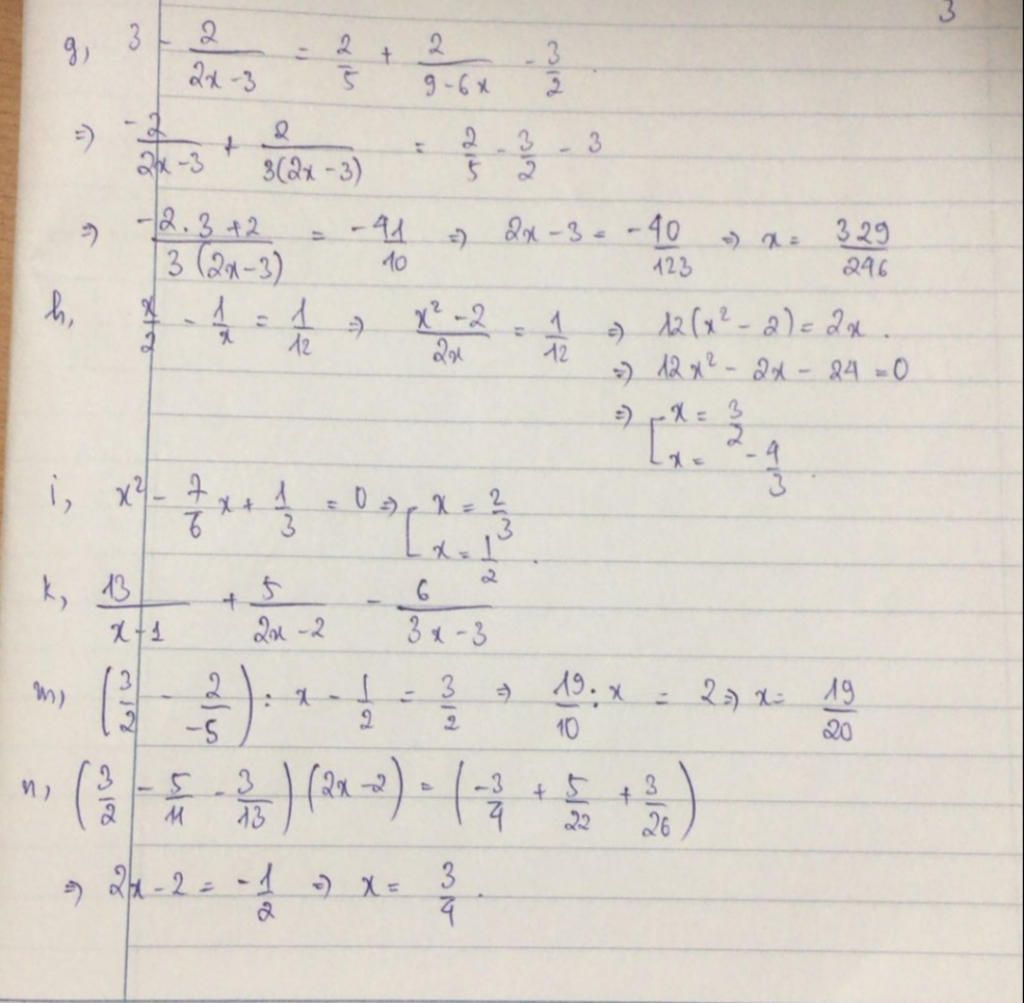 3
g, 3 - 2/(2x-3) = 2/5 + 2/(9-6x) - 3/2.
=> -2/(2x-3) + 2/(3(2x-3)) = 2/5 - 3/2 - 3
=> (-2.3+2)/(3(2x-3)) = -41/10 => 2x-3 = -40/123 => x = 329/246
h, x/2 - 1/x = 1/12 => (x²-2)/(2x) = 1/12 => 12(x²-2) = 2x.
=> 12x² - 2x - 24 = 0
=> [x = 3/2
x = -4/3.
i, x² - 7/6 x + 1/3 = 0 => [x = 2/3
x = 1/2.
k, 13/(x-1) + 5/(2x-2) - 6/(3x-3)
m, (3/2 - 2/-5) : x - 1/2 = 3/2 => 19/10 : x = 2 => x = 19/20
n, (3/2 - 5/11 - 3/13)(2x-2) = (-3/4 + 5/22 + 3/26)
=> 2x-2 = -1/2 => x = 3/4.